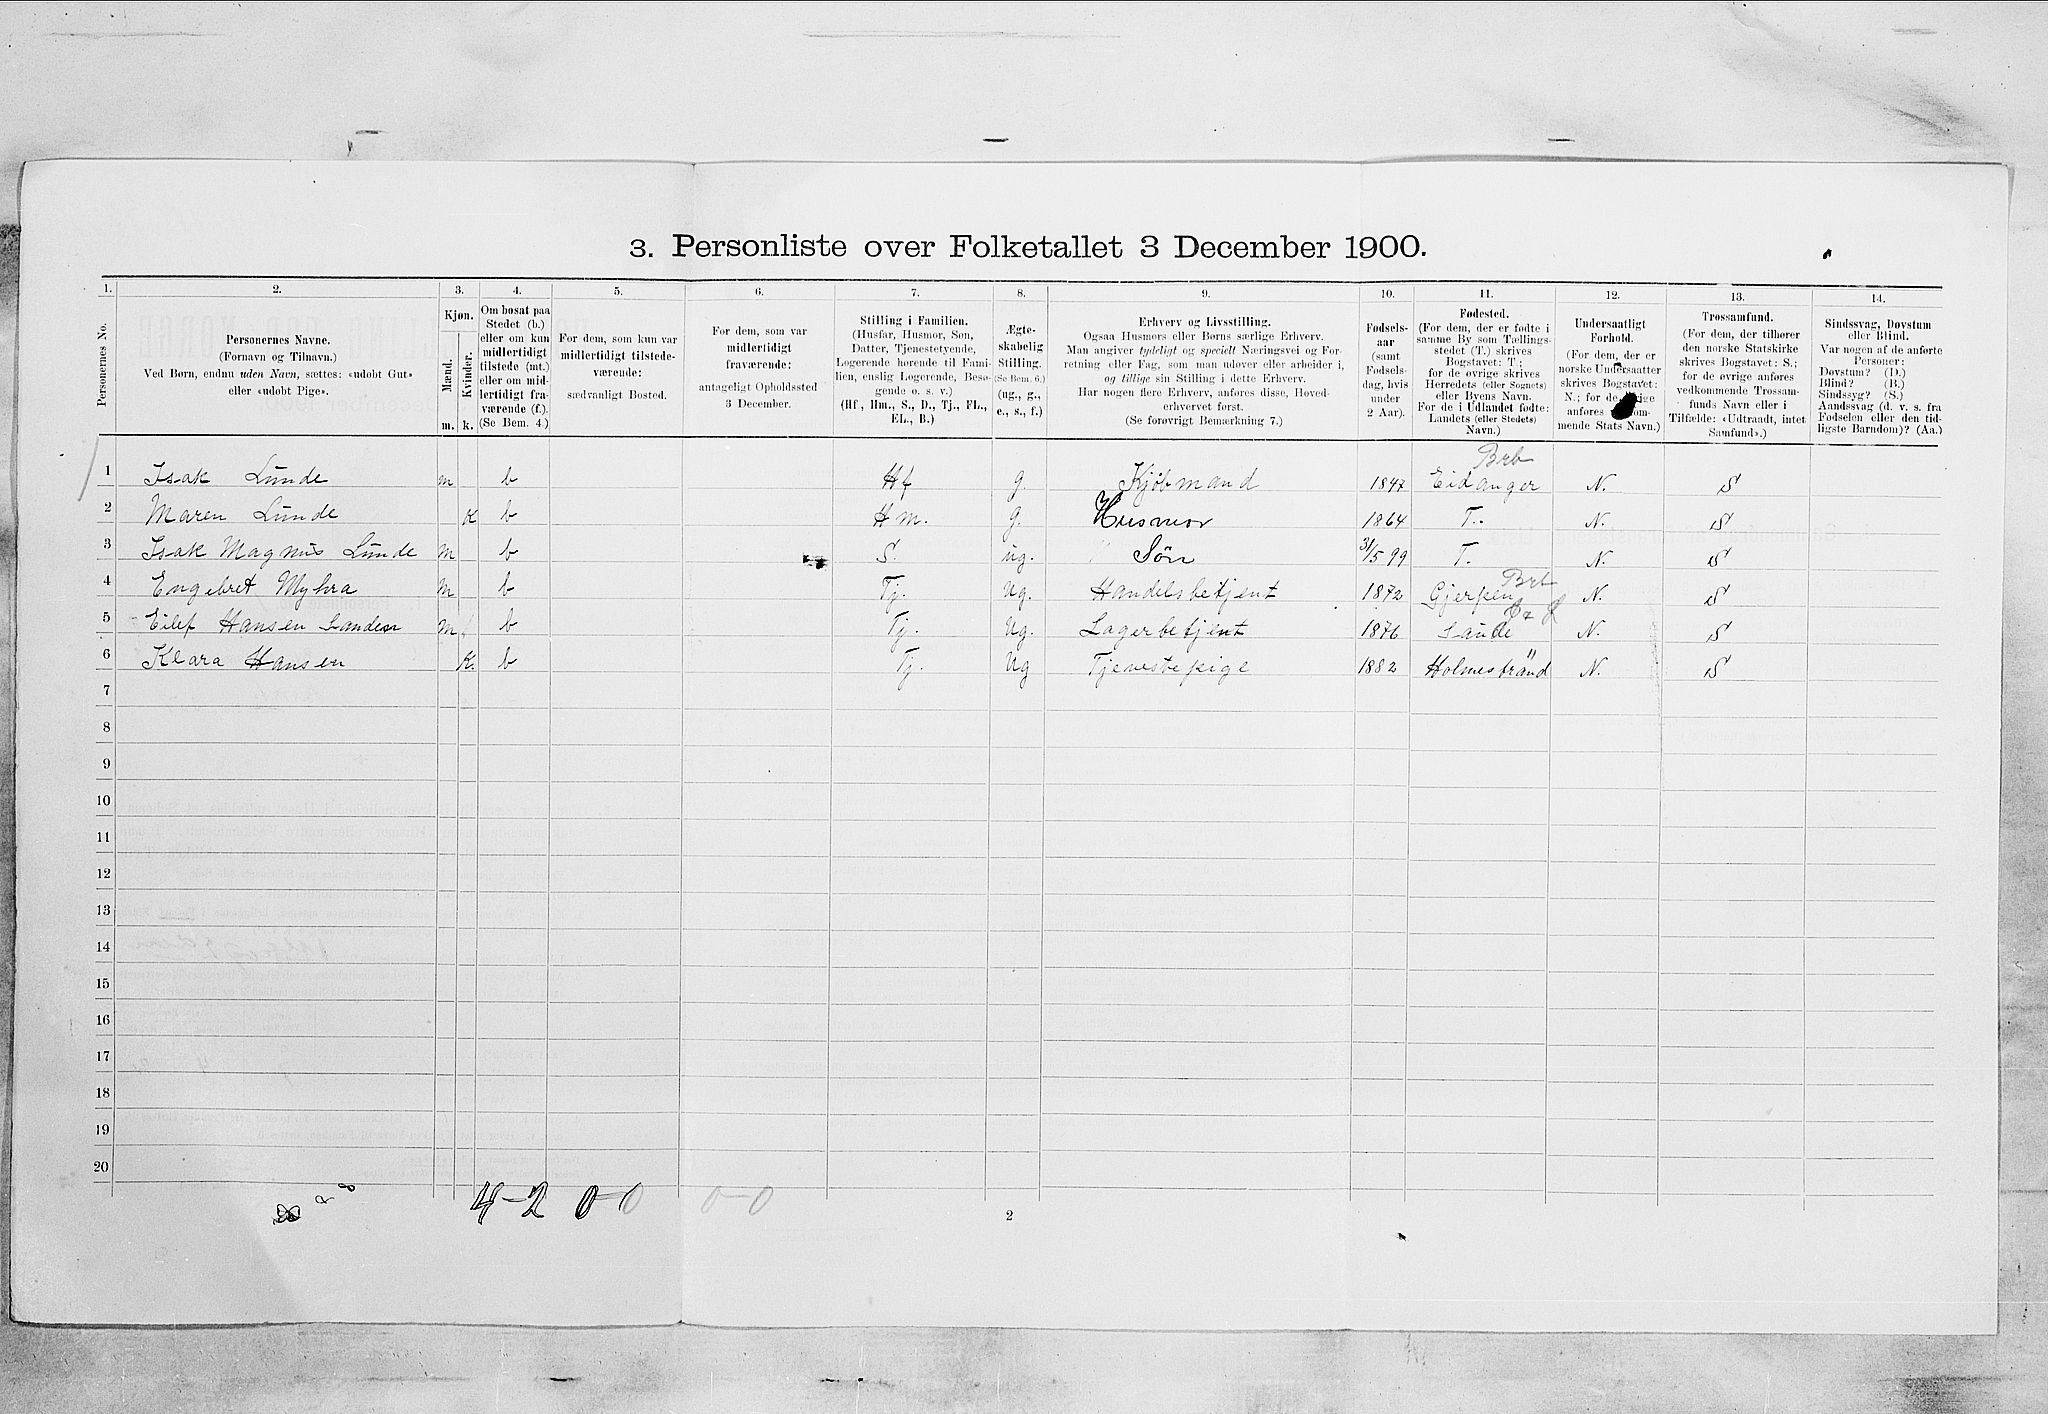 3. Personliste over Folketallet 3 December 1900.
1. 2. 3. 4. 5. 6. 7. 8. 9. 10. 11. 12. 13. 14.
Personernes No.
Personernes Navne.
(Fornavn og Tilnavn.)
Ved Børn, endnu uden Navn, sættes: «udobt Gut»
eller «udobt Pige».
Kjøn.
Mænd.
Kvinder.
m. k.
Om bosat paa
Stedet (b.)
eller om kun
midlertidigt
tilstede (mt.)
eller om mid-
lertidigt fra-
værende (f.).
(Se Bem. 4.)
For dem, som kun var
midlertidigt tilstede-
værende:
sædvanligt Bosted.
For dem, som var
midlertidigt
fraværende:
antageligt Opholdssted
3 December.
Stilling i Familien.
(Husfar, Husmor, Søn,
Datter, Tjenestetyende,
Logerende hørende til Fami-
lien, enslig Logerende, Besø-
gende o. s. v.)
(Hf., Hm., S., D., Tj., FL.,
EL., B.)
Ægte-
skabelig
Stilling.
(Se Bem. 6.)
(ug., g.,
e., s., f.)
Erhverv og Livsstilling.
Ogsaa Husmors eller Børns særlige Erhverv.
Man angiver tydeligt og specielt Næringsvei og For-
retning eller Fag, som man udøver eller arbeider i,
og tillige sin Stilling i dette Erhverv.
Har nogen flere Erhverv, anføres disse, Hoved-
erhvervet først.
(Se forøvrigt Bemærkning 7.)
Fødsels-
aar
(samt
Fødsels-
dag, hvis
under
2 Aar).
Fødested.
(For dem, der er fødte i
samme By som Tællings-
stedet (T.) skrives
Bogstavet: T;
for de øvrige skrives
Herredets (eller Sognets)
eller Byens Navn.
For de i Udlandet fødte:
Landets (eller Stedets)
Navn.)
Undersaatligt
Forhold.
(For dem, der er
norske Undersaatter
skrives Bogstavet:
N.; for de øvrige
anføres
mende Stats Navn.)
Trossamfund.
(For dem, der tilhører
den norske Statskirke
skrives Bogstavet: S.;
for de øvrige anføres
vedkommende Trossam-
funds Navn eller i
Tilfælde: «Udtraadt, intet
Samfund».)
Sindssvag, Døvstum
eller Blind.
Var nogen af de anførte
Personer:
Døvstum? (D.)
Blind? (B.)
Sindssyg? (S.)
Aandssvag (d. v. s. fra
Fødselen eller den tid-
ligste Barndom)? (Aa.)
Brb
1 Isak Lunde m b Hf g. Kjøbmand 1847 Eidanger N. S
2 Maren Lunde K b Hm. g. Husmor 1864 T. N. S
3 Isak Magnus Lunde m b S. ug. Søn 31/5 99 T. N. S
Brb
4 Engebret Myhra m b Tj. ug. Handelsbetjent 1872 Gjerpen N. S
5 Eilef Hansen Sanden m b Tj. ug. Lagerbetjent 1876 Saude N. S
6 Klara Hansen K. b Tj. ug Tjenestepige 1882 Holmestrand N. S
7
8
9
10
11
12
13
14
15
16
17
18
19
20
4-2 0-0 0-0
2